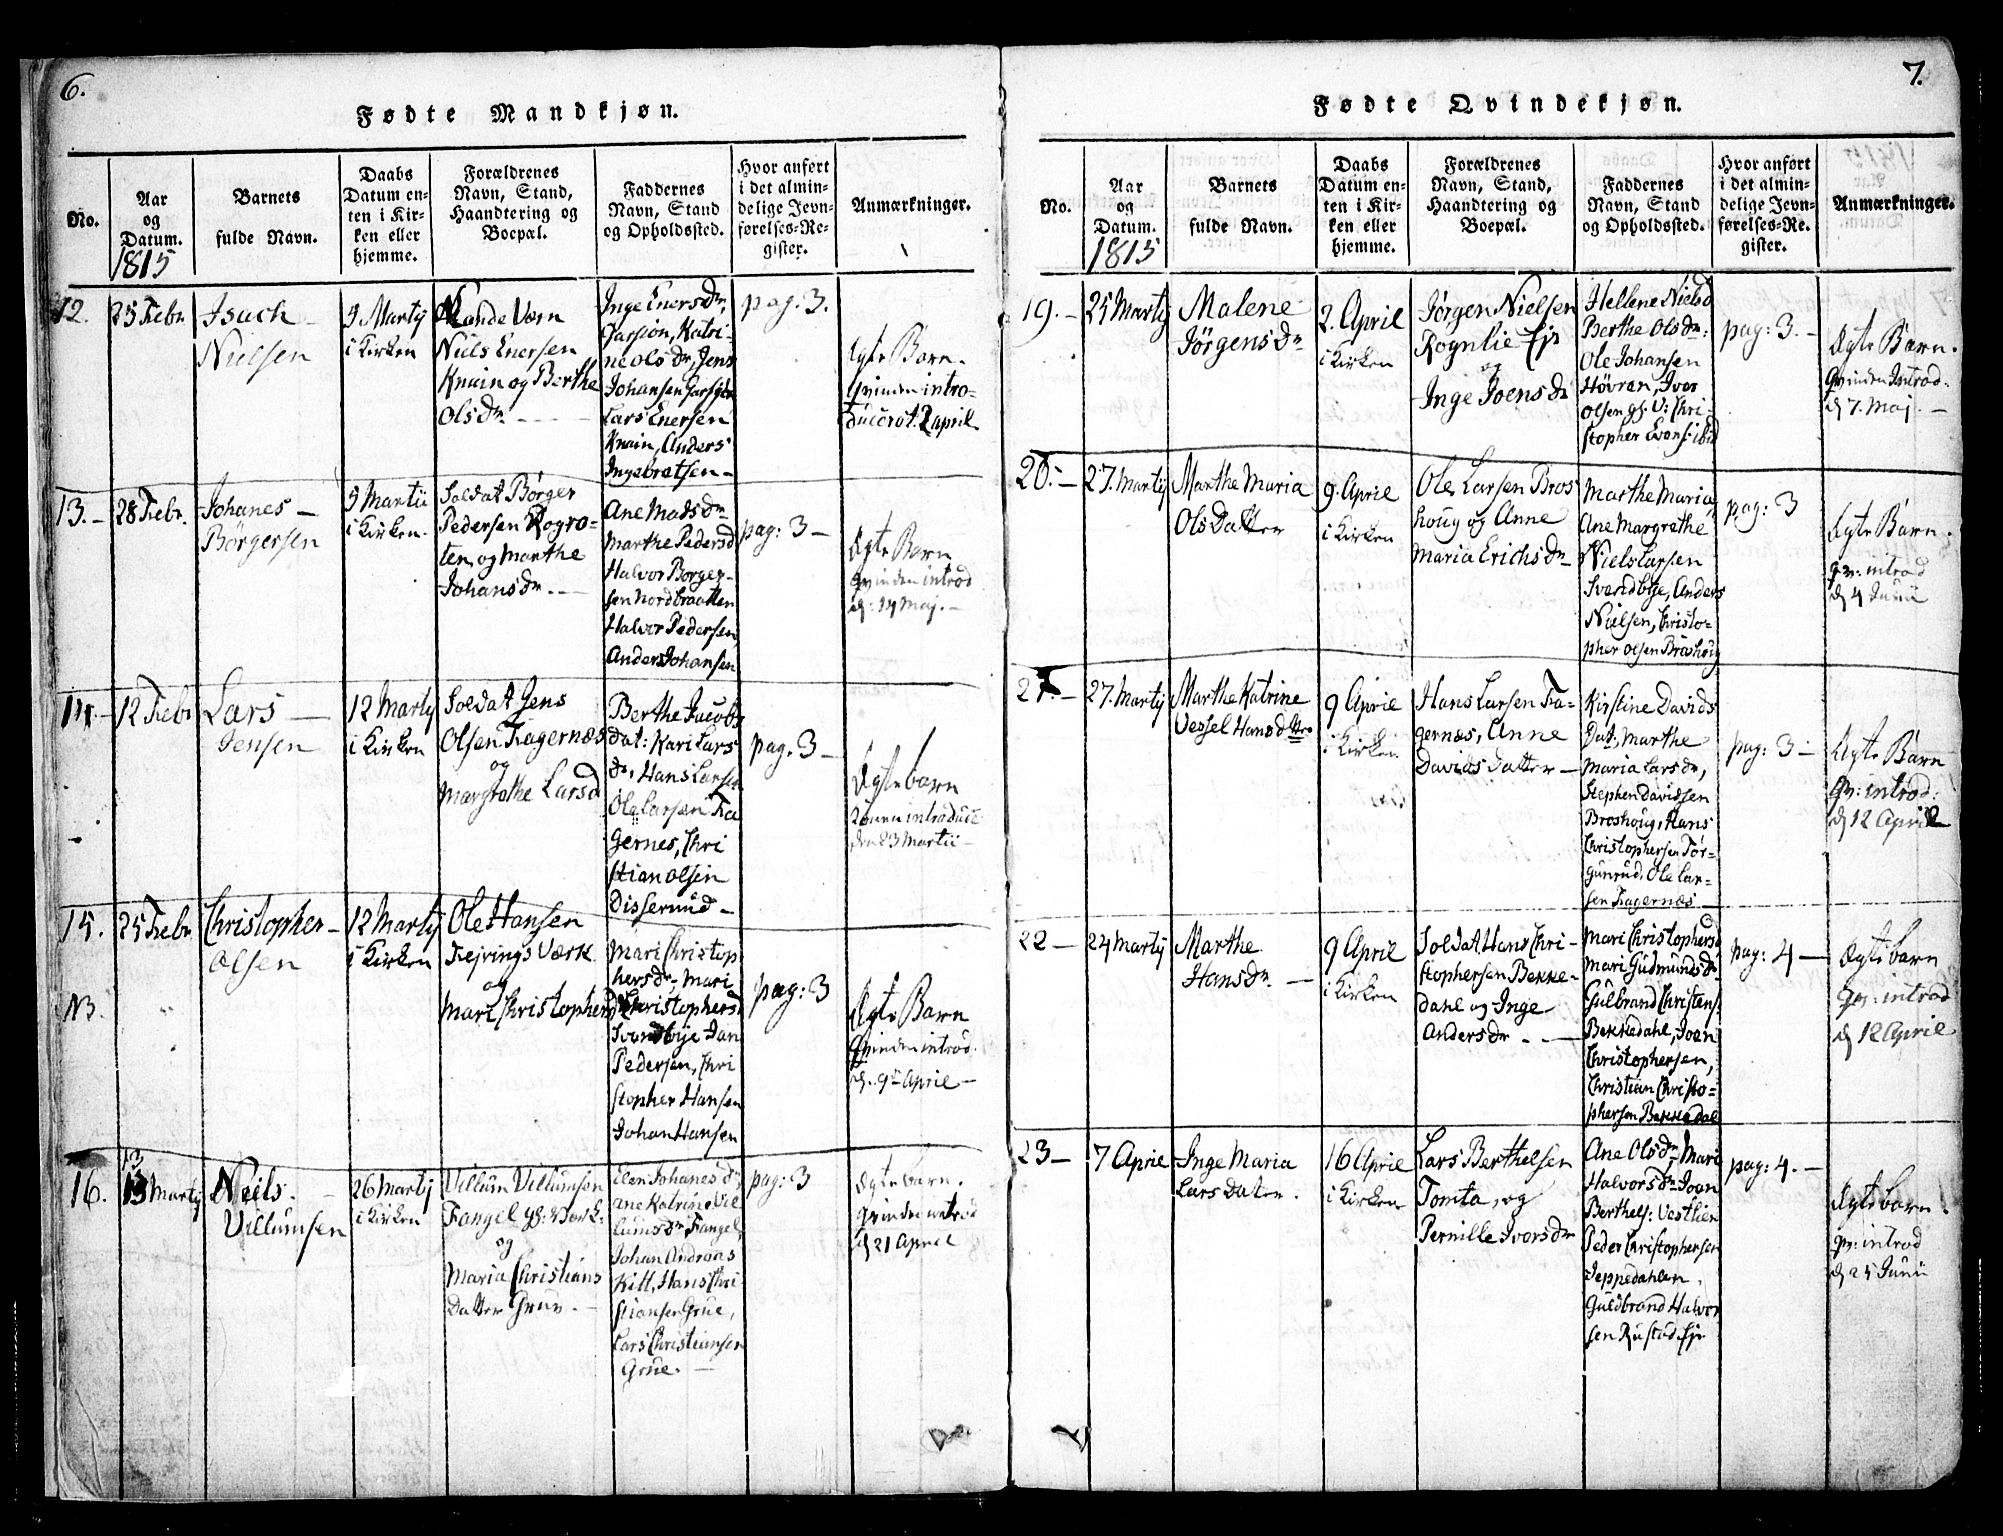 6.
Fødte Mandkjøn.
No.
Aar
og
Datum.
1815
Barnets
fulde Navn.
Daabs
Datum en-
ten i Kir-
ken eller
hjemme.
Forældrenes
Navn, Stand,
Haandtering og
Boepæl.
Faddernes
Navn, Stand
og Opholdssted.
Hvor anført
i det almin-
delige Jevn-
førelses-Re-
gister.
Anmærkninger.
12.
25 Febr.
Isach
Nielsen
5 Martij
i Kirken
Niels Enersen
Knain og Berthe
Olsdr
Inge Enersdr,
Garsjøn, Katri-
ne olsdr, Jens
Johansen Garsjøen
Lars Enersen
Knain, Anders
Ingebretsen
pag. 3.
Ægte Barn.
Qvinden intro-
duceret 2 april
13.
28 Febr.
Johanes
Børgersen
5 Martii
i Kirken.
Soldat Børger
Pedersen Rogro-
ten og Marthe
Johansdr.
Ane Madsdr
Marthe Pedersd
Halvor Børger-
sen Nordbraatten
Halvor Pedersen,
Anders Johansen
pag: 3
Ægte Barn
Qvinden introd
d. 14 Maj.
14.
12 Febr
Lars
Jensen
12 Martij
i Kirken
Soldat Jens
Olsen Fagernæs
og
Margrethe Larsd
Berthe Jacobs
dat: Kari Lars
dr, Hans Larsen
Ole Larsen Fa
gernes, Chri
stian olsen
Disserud
pag. 3
Ægte barn
introduct
den 23 Martii
15.
25 Febr
Christopher
Olsen
12 Martij
i Kirken
Ole Hansen
Fejrings Værk
og
Mari Christophersd
Mari Christop
hersdr, Mari
Christophersd
Svendbye Jan
Pedersen, Chri
stopher Hansen
Johan Hansen
pag: 3
Ægte Barn
Qvinden introd.
d. 9de April
NB.
16.
13 Martij
Niels
Villumsen
26 Martij
i Kirken
Villum Villumsen
Fangel gs: Værk.
og
Maria Christians
Datter Grue.
Elen Johanesd,
ane Katrine Vil
lumsdr Fangel,
Johan Andreas
Kitt, Hans Chri
stiansen Grue,
Lars Christiansen
Grue.
pag: 3
Ægte barn.
Qvinden introd
d 21 April
7.
Fødte Qvindekjøn.
No.
Aar
og
Datum.
1815
Barnets
fulde Navn.
Daabs
Datum en-
ten i Kir-
ken eller
hjemme.
Forældrenes
Navn, Stand,
Haandtering og
Boepæl.
Faddernes
Navn, Stand
og Opholdssted.
Hvor anført
i det almin-
delige Jevn-
førelses-Re-
gister.
Anmærkninger.
19.
25 Martij
Malene
Jörgensdr
2. April
i Kirken
Jörgen Nielsen
Rognlie Ejr
og
Inge Joensdr
Hellene Nielsd
Berthe Olsdr:
Ole Johansen
Hövran Iver
Olsen gs. V: Chri-
stopher Evens: ibid
pag: 3.
Ægte Barn.
Qvinden Introd.
d 7. Maj.
20.
27. Martij
Marthe Maria
Ols Datter
9. April
i Kirken
Ole Larsen Bros
houg og Anne
Maria Erichsdr
Marthe Maria,
Ane Margrethe
Niels Larsen
Svendbye, Anders
Nielsen, Christo-
pher olsen Broshoug
pag: 3
Ægte Barn.
Qv: introd
d 4 Junii
21.
27. Martij
Marthe Katrine
Vessel Hansdtr.
9 April
i Kirken
Hans Larsen Fa-
gernæs, Anne
Davids Datter
Kirstine Davids
Dat, Marthe
Maria Larsdr,
Stephen Davidsen
Broshoug, Hans
Christophersen Tor-
gunrud, Ole Lar-
sen Fagernæs
pag: 3
Ægte Barn
Qv: introd:
d 12 April
22
24 Martij
Marthe
Hansdr.
9 April
i Kirken
Soldat Hans Chri-
stophersen Bekke-
dahl og Inge
Andersdr
Mari Christophersd
Mari Gudmundsdr
Gulbrand Christens.
Bekkedahl, Joen
Christophersen,
Christian Christo-
phersen Bekkedal
pag: 4
Ægte barn
Qv: introd
d 12 April
23
7 April
Inge Maria
Lars Dater.
16 April
i Kirken
Lars Berthelsen
Tomta, og
Pernille Iversdr
Ane Olsdr, Mari
Halvorsdr Joen
Berthels: Vestlien
Peder Christophersen
Jeppedahlen.
Guldbrand Halvor
sen Rustad Ejr
pag: 4.
Ægte barn
Qv: introd
d 25 Junii